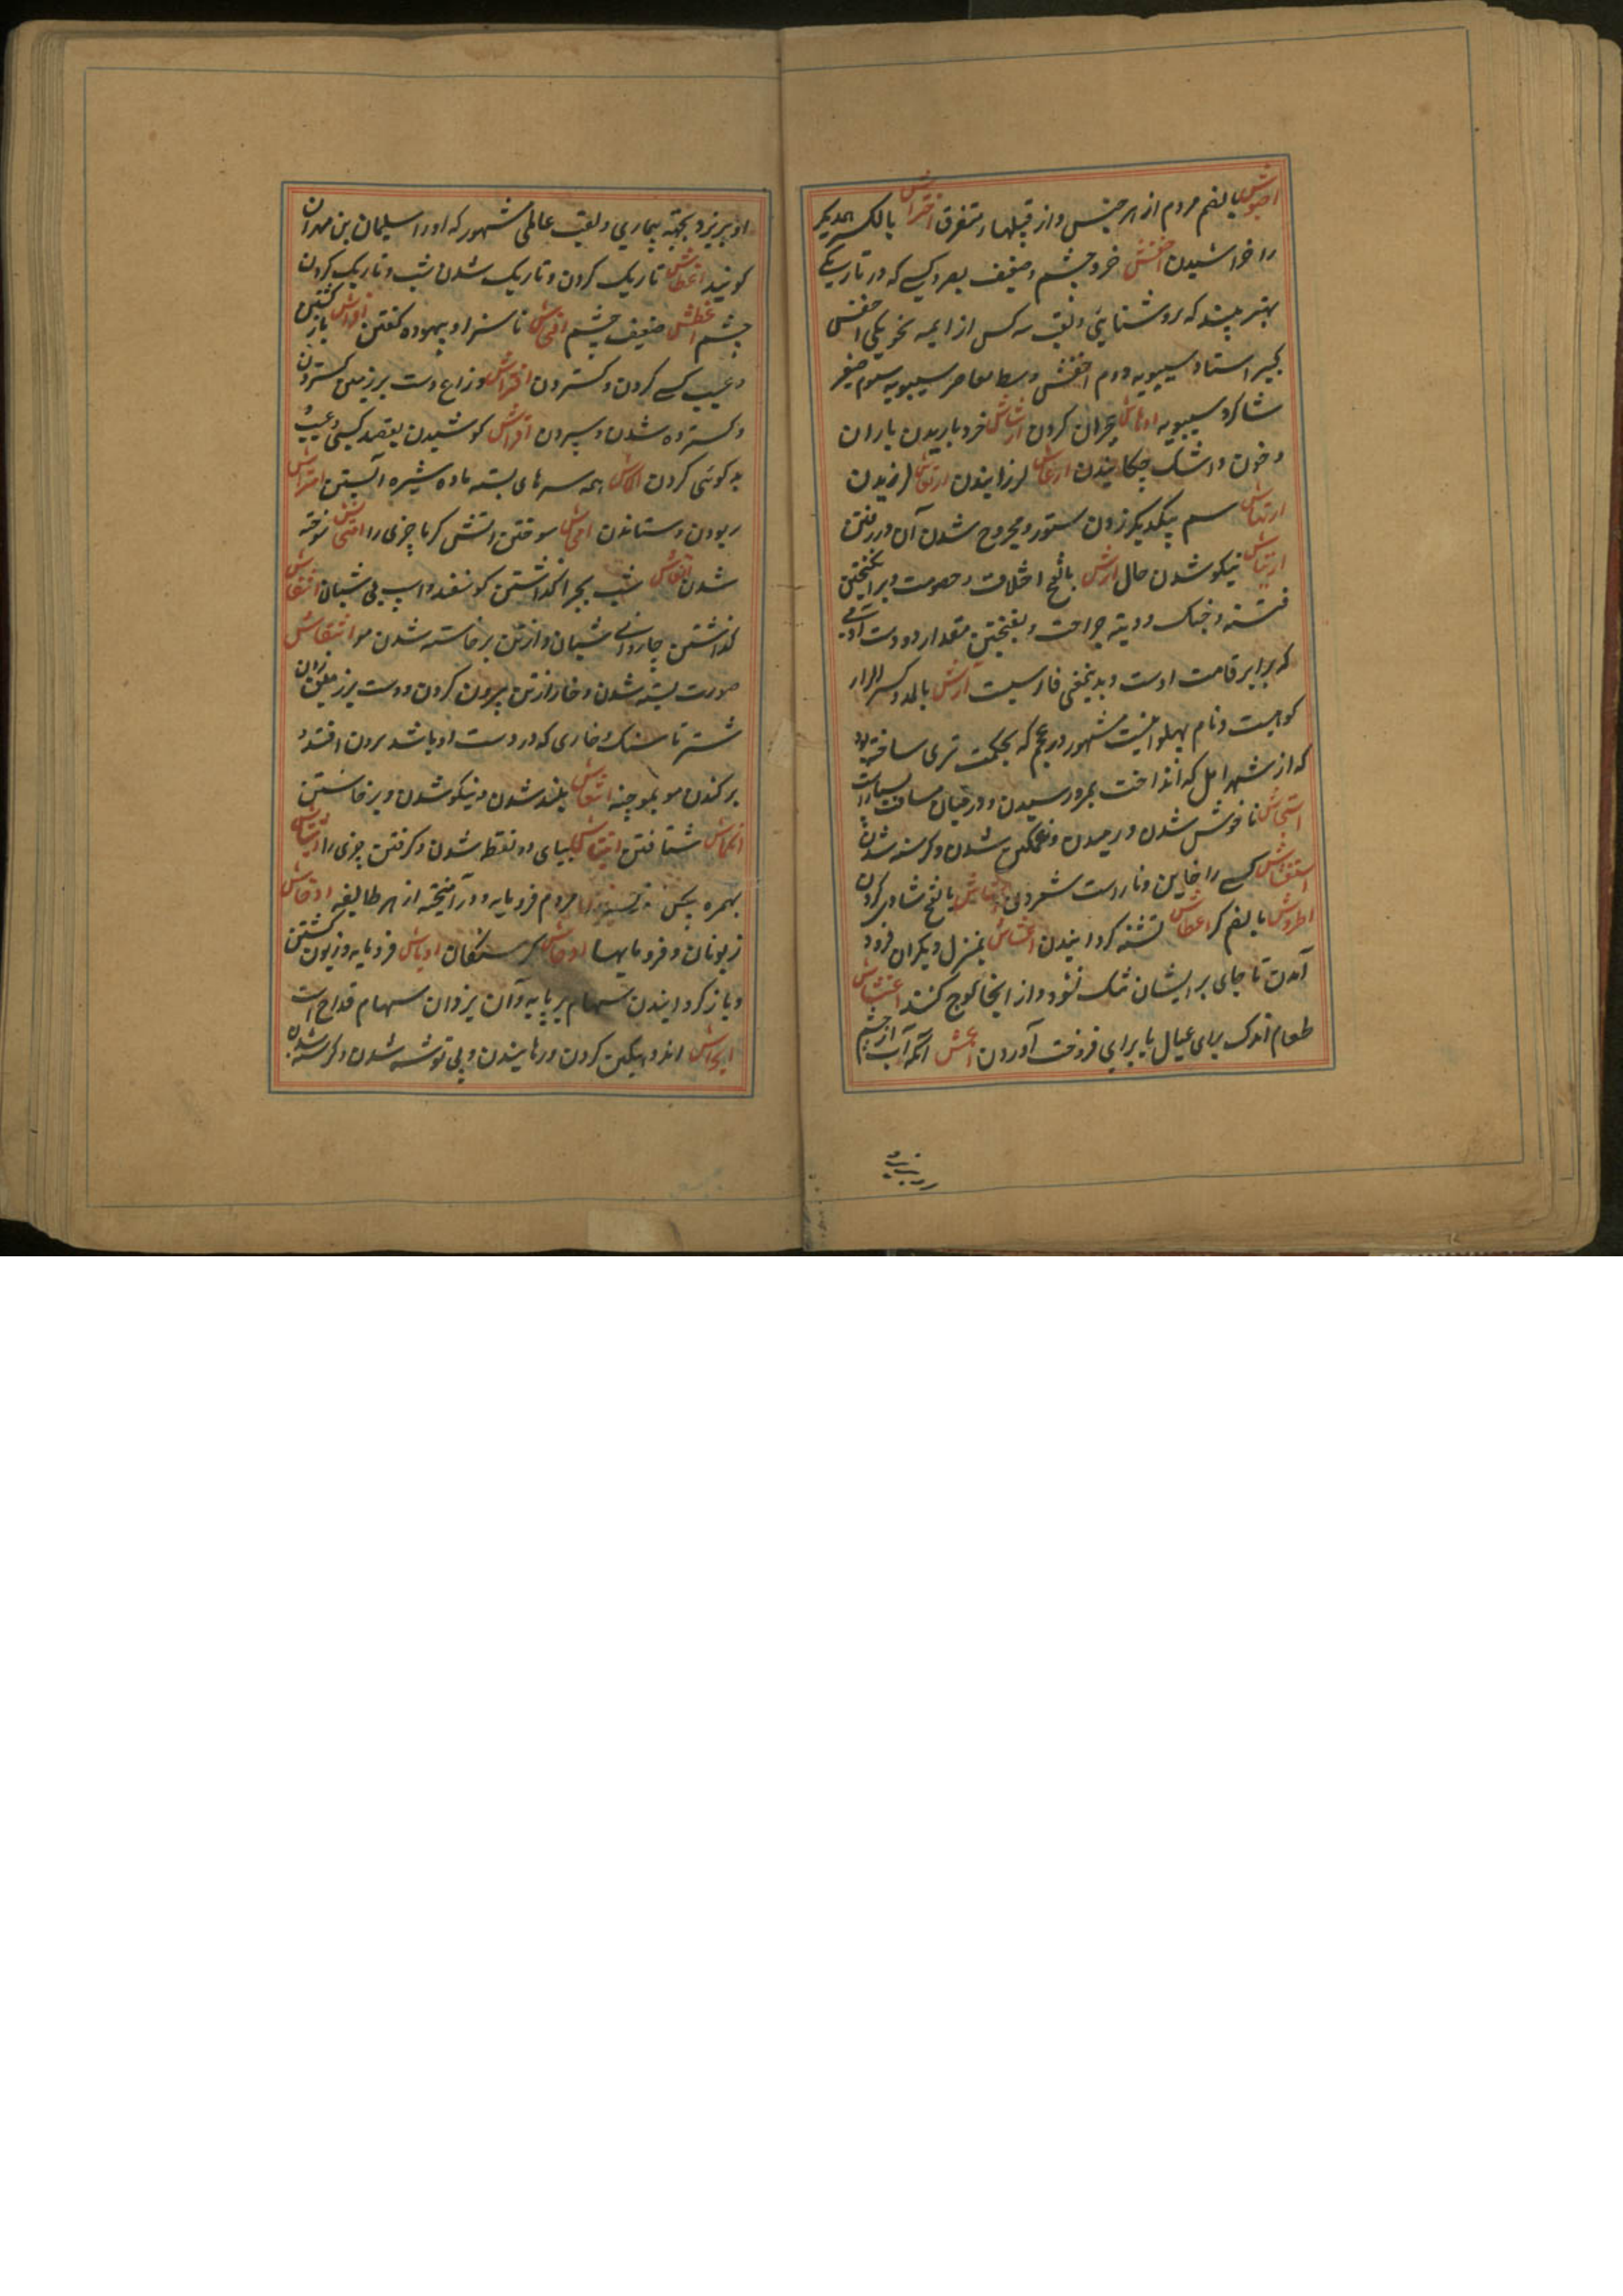 احبوش بالضم مردم از هر جنس و از قبیلها، متفرق اختراش بالکسر همدیگر
را خراشیدن اخفش خرد چشم و ضعیف بصر و کسی که در تاریکی
بهتر بیند که بروشنایی و لقب سه کس از ایمه نحو یکی اخفش
کبیر استاد سیبویه دوم اخفش وسط معاصر سیبویه سیوم صغیر
شاکرد سیبویه حیران کردن ارشاش خرد باریدن باران
و خون و اشک چکانیدن ارعاش لرزانیدن ارتعاش لرزیدن
ارتهاش سم بیکدیکر زدن ستور و مجروح شدن آن در رفتن
ارتیاش نیکو شدن حال ارش بالفتح اختلاف و خصومت و برانکیختن
فتنه و جنک و دیه جراحت و مقدار دو دست آدمی
که برابر قامت اوست و بدینمعنی فارسیست آرش بالمد و کسر الرا
کوهیست و نام پهلوانیست مشهور در عجم که بحکمت تیری ساخته بود
که از شهر امل که انداخت بمرو رسیدن و در میان مسافت بسیار است
استیحاش ناخوش شدن و رمیدن و غمکین شدن و کرسنه شدن
استغشاش کسی را خاین و ناراست شمردن بالفتح شادی کردن
اطروش بالضم کر اعطاش تشنه کردانیدن اغشاش بمنزل دیکران فرود
آمدن تا جای بر ایشان تنک شود و از انجا کوچ کنند اعتشاش
طعام اندک برای عیال یا برای فروخت آوردن اعمش آنکه آب از چشم
او بریزد بجهة بیماری و لقب عالمی مشهور که او را سلیمان بن مهران
کویند اغطاش تاریک کردن و تاریک شدن شب و تاریک کردن
چشم اغطش ضعیف چشم افحاش ناسزا و بیهوده کفتن افراش باز کشتن
و غیبت کسی کردن و کستردن افتراش دو ذراع دست بر زمین کستردن
و کسترده شدن و سپردن اقراش کوشیدن بقصد کسی و عیب و
بدکوئی کردن همه سرهای بسته ماده شیره آبستن امتراش
ربودن و ستاندن امحاش سوختن آتش کرما چیزی را امتحاش سوخته
شدن انفاش شب بچرا کذاشتن کوسفند و اسپ بی شبان انتفاش
کذاشتن چاروای شبان و از تن برخاسته شدن مو انتقاش
صورت بسته شدن و خار از تن بیرون کردن و دست بر زمین زدن
شتر تا سنک و خاری که در دست او باشد بیرون افتد و
برکندن مو بموچینه انتعاش بلند شدن و نیکو شدن و برخاستن
انکماش شتافتن انتیاش بیای دو نقطه شدن و کرفتن چیزی را
بهمزه پس مردم فرومایه و درآمیخته از هر طایفه اوخاش
زبونان و فرومایها اوحاش کرسنکان اوباش فرومایه و زبون کشتن
و باز کردانیدن سهام بر پایه و آن یزدان سهام قداح است
ایحاش اندوهکین کردن و رمانیدن و بی توشه شدن و کرسنه شدن